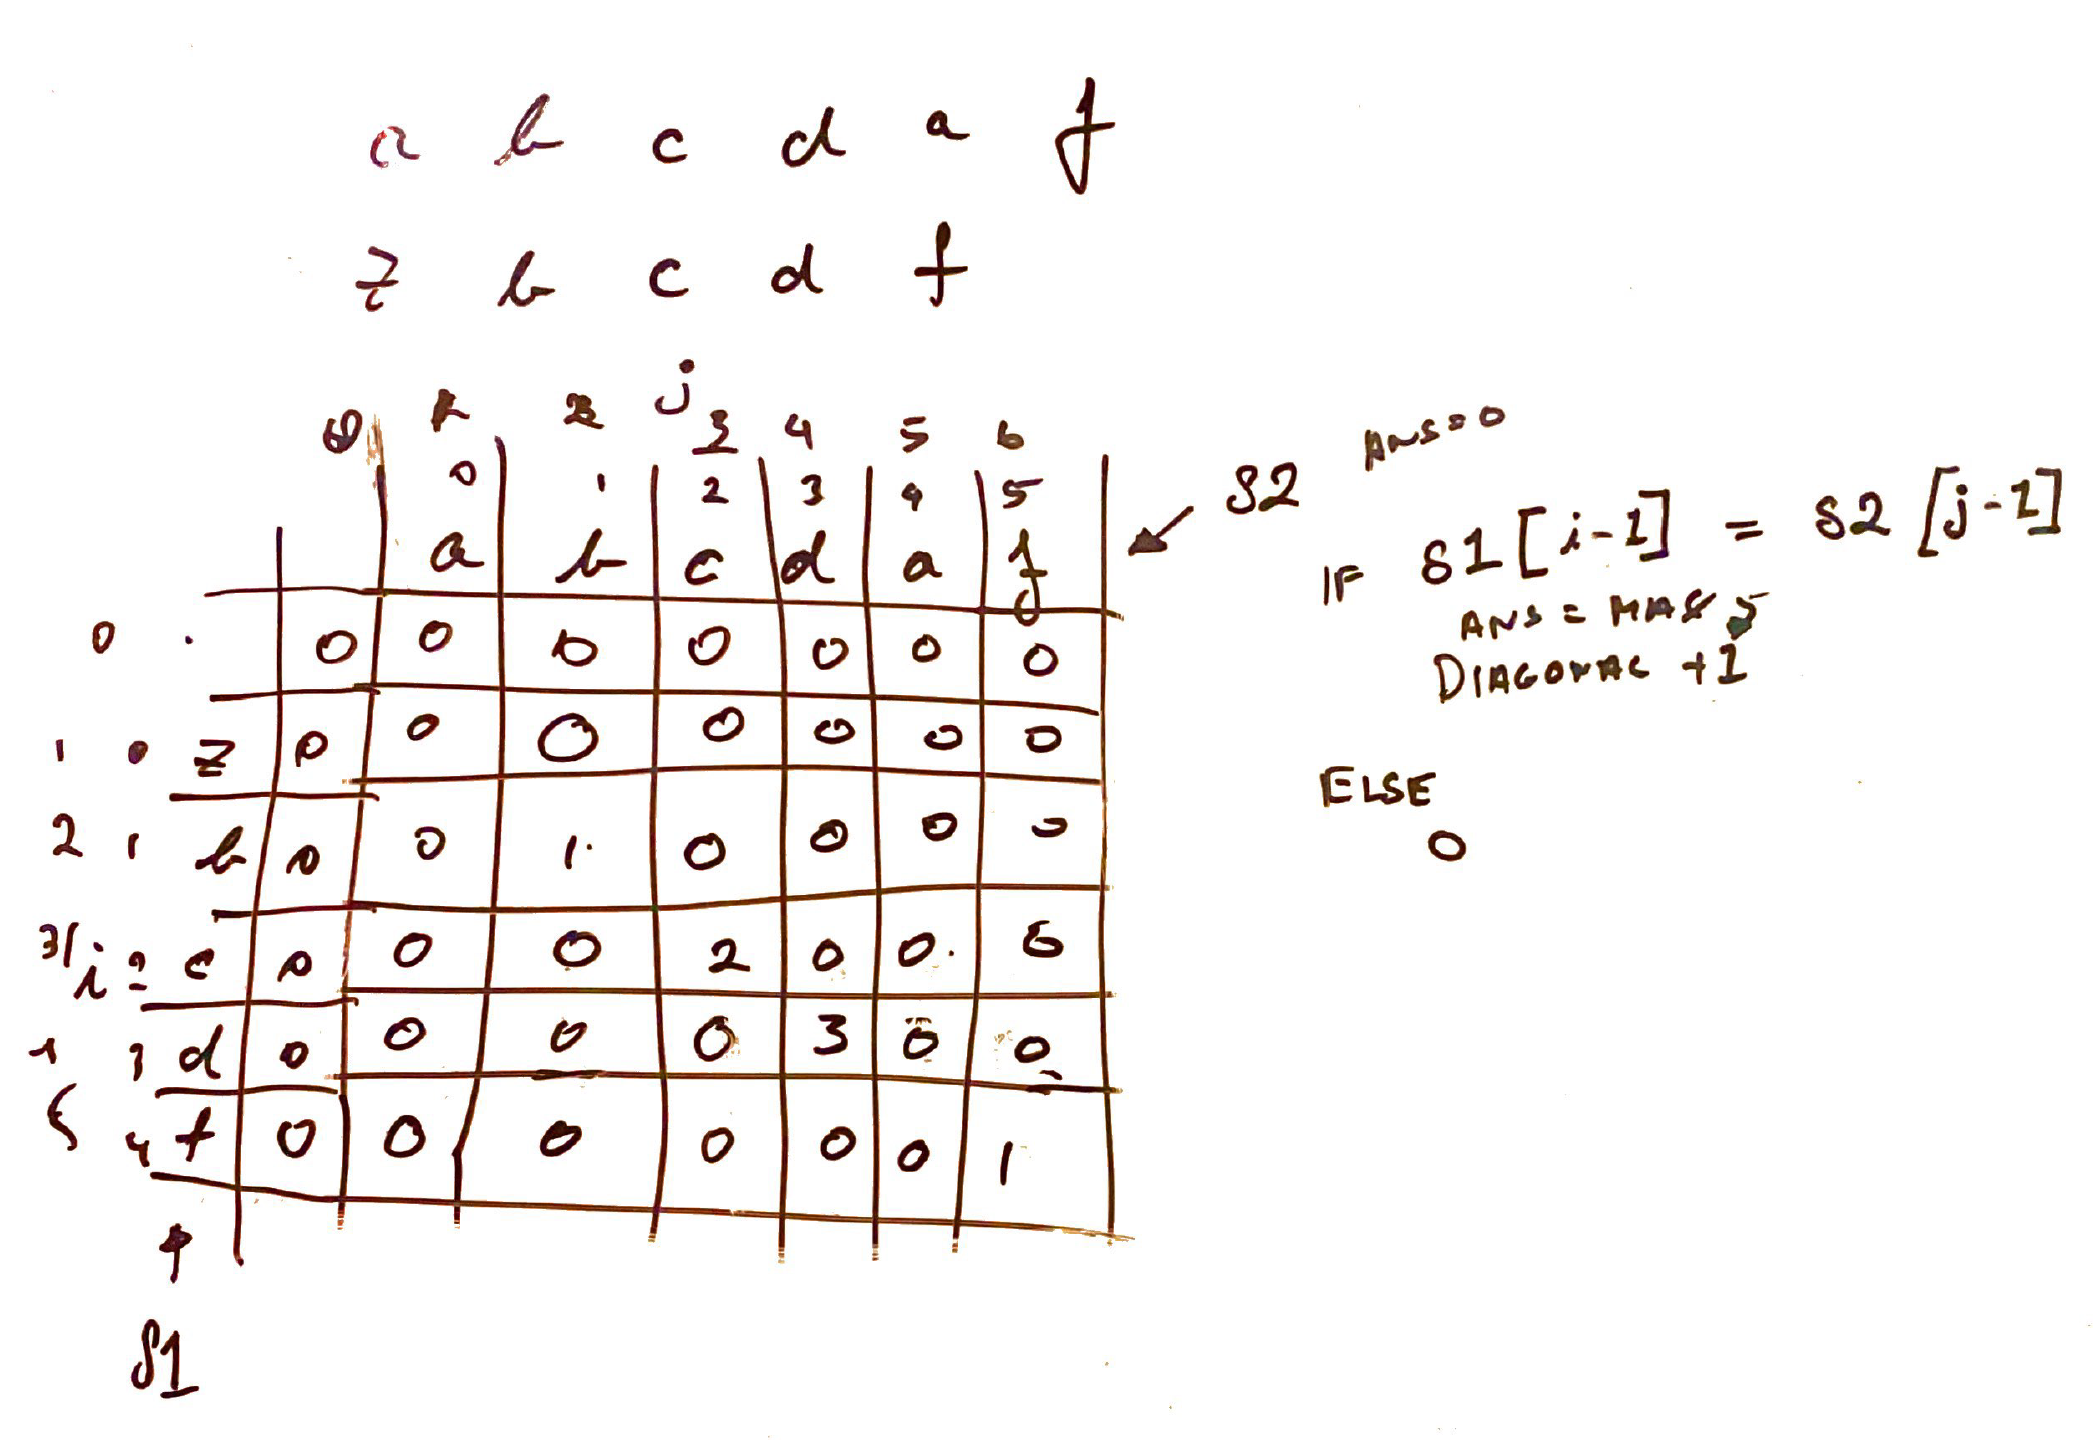 a b c d a f
z b c d f
j
0 1 2 3 4 5 6
0 1 2 3 4 5
a b c d a f
S2
ANS=0
IF S1[i-1] = S2[j-1]
ANS = MAX
DIAGONAL +1
ELSE
0
0 0 0 0 0 0 0 0
1 0 z 0 0 0 0 0 0 0
2 1 b 0 0 1 0 0 0 0
3 i 2 c 0 0 0 2 0 0 0
3 d 0 0 0 0 3 0 0
5 4 f 0 0 0 0 0 0 1
S1